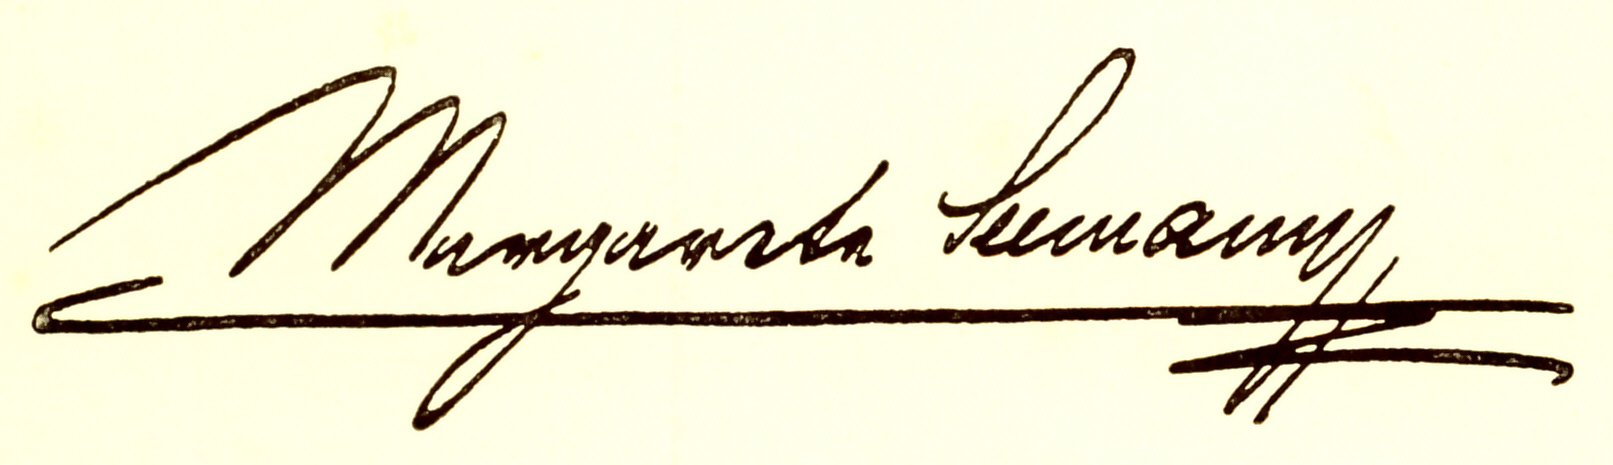 Margarete Seemann